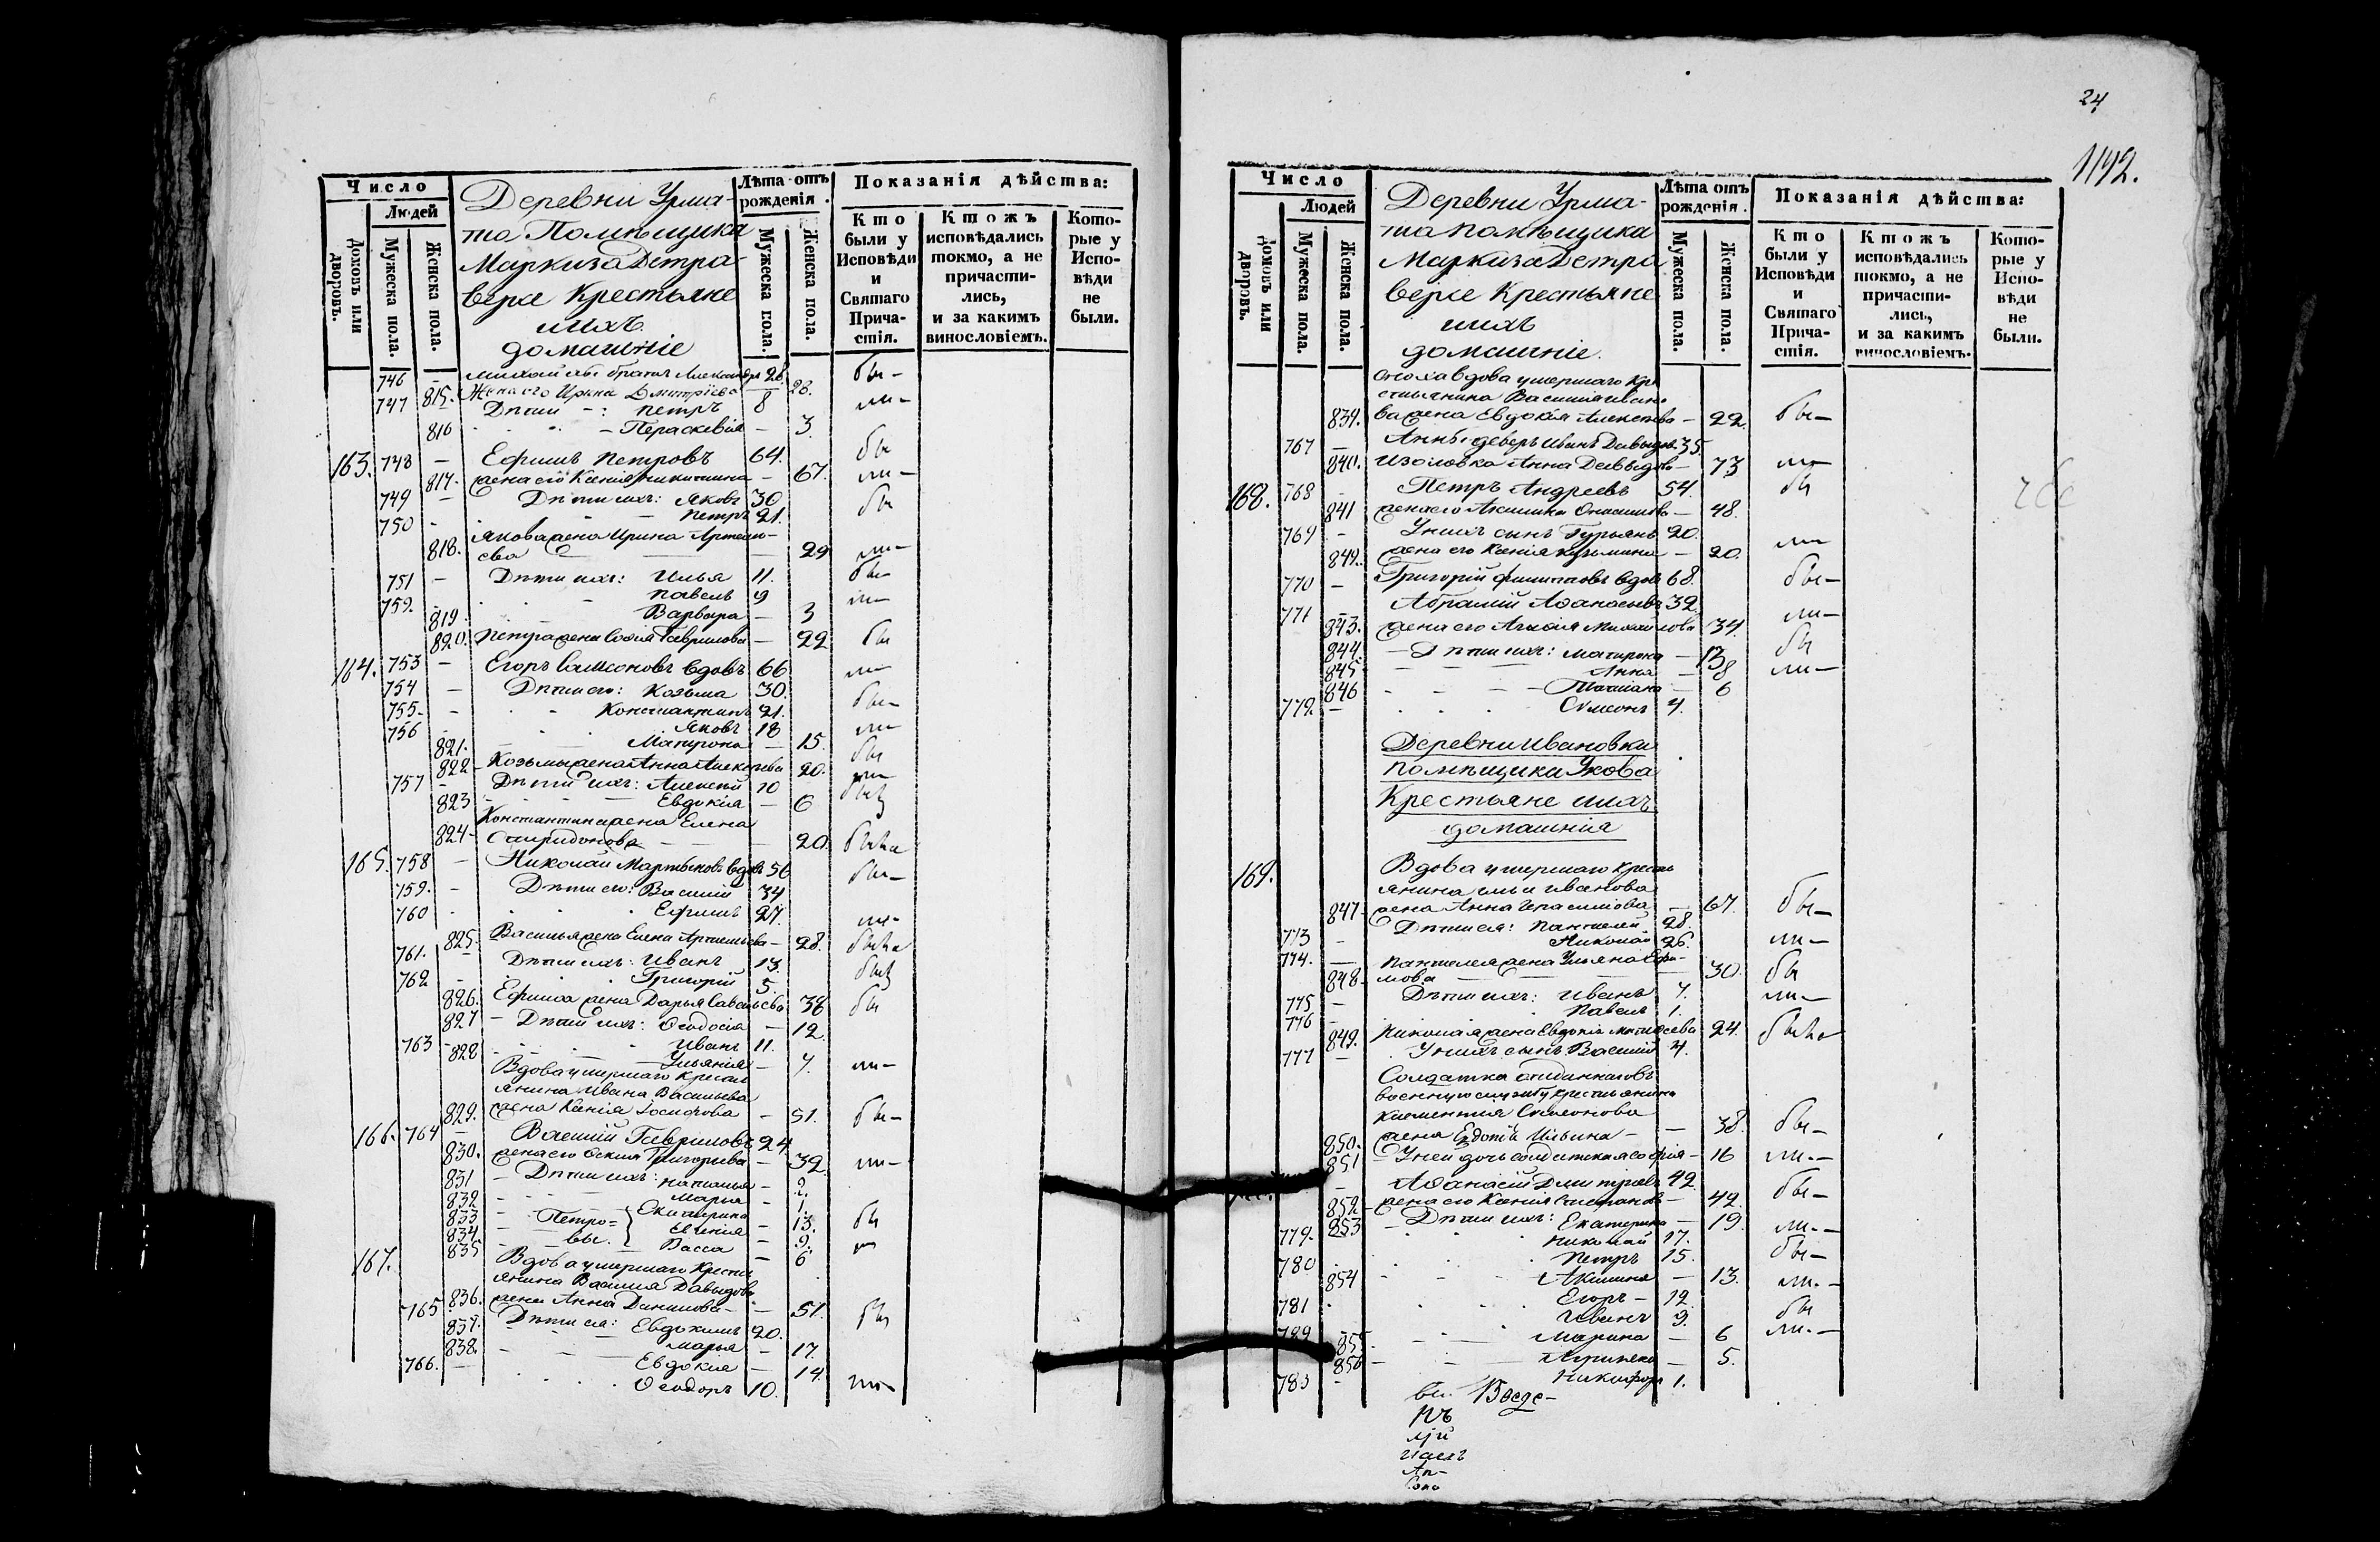 Число
Людей
Домовъ или дворовъ.
Мужеска пола.
Женска пола.
Деревни Урма-
та Помѣщика
Маркиза Детра-
версе Крестьяне
ихъ
домашніе
Лѣта отъ рожденія.
Мужеска пола.
Женска пола.
Показанія дѣйства:
Кто были у Исповѣди и Святаго Причастія.
Ктожъ исповѣдались токмо, а не причасти-лись, и за какимъ винословіемъ.
Кото-рые у Испо-вѣди не были.
746 – братъ Александръ 28. бы-
815. Жена его Ирина Дмитріева – 28.
747 Дѣти -: Петръ 8 ли-
816 – Пераскевія – 3.
163. 748 – Ефимъ Петровъ 64. бы
817. жена его Ксенія Никитина – 67. ли-
749 – Дѣти ихъ: Яковъ 30
750 – Петръ 21. бы
Якова жена Ирина Артемь-
818. ева – 29 ли-
751 – Дѣти ихъ: Илья 11. бы-
752. – Павелъ 9 ли-
819. – Варвара – 3
820. Петра жена Софія Гаврилова – 22 бы
164. 753 – Егоръ Самсоновъ вдовъ 66 ли-
754 – Дѣти его: Козьма 30.
755. – Константинъ 21. бы-
756 – Яковъ 18 ли-
821. – Матрона – 15. бы
822 – Козьмы жена Анна Алексѣева 20. ли-
757 – Дѣти ихъ: Алексѣй 10
823 – Евдокія – 6
Константина жена Елена
824 – Спиридонова – 20.
165. 758 – Николай Мартыновъ вдовъ 56 бы-
759. – Дѣти его: Василій 34
760 – Ефимъ 27. ли-
825. Василья жена Елена Артемьева – 28.
761. – Дѣти ихъ: Иванъ 13.
762 – Григорій 5.
826. Ефима жена Дарья Савельева 38 бы
827 – Дѣти ихъ: Ѳеодосія – 12.
763 – Иванъ 11.
828 – Ульянія – 7. ли-
Вдова умершаго Кресть
янина Ивана Васильева
829. жена Ксенія Іосифова – 51. бы-
166. 764 – Василій Гавриловъ 24
830. жена его Григорьева – 32 ли-
831 – Дѣти ихъ: Наталья – 2.
832 – Марья – 1.
833 – Петро- Екатерина – 13. бы
834 – вы. Евгенія – 9.
835 Васса – 6
167. Вдова умершаго Кресть
янина Василія Давыдова
836. жена Анна Данилова – 51. бы
765 Дѣти ея: Евдокимъ 20.
837. – Марья – 17.
838. – Евдокія – 14
766. – Ѳеодоръ 10. ли-
24
1192.
Число
Людей
Домовъ или дворовъ.
Мужеска пола.
Женска пола.
Деревни Урма-
та помѣщика
Маркиза Детра
версе Крестьяне
ихъ
домашніе.
Лѣта отъ рожденія.
Мужеска пола.
Женска пола.
Показанія дѣйства:
Кто были у Исповѣди и Святаго Причастія.
Ктожъ исповѣдались токмо, а не причасти-лись, и за какимъ винословіемъ.
Кото-рые у Испо-вѣди не были.
вдова умершаго Кре
стьянина Василія Ивано
839. ва жена Евдокія Алексѣева – 22. бы-
767 – Анны деверь Иванъ Давыдовъ 35.
840. Анна Давыдова – 73 ли-
168. 768 – Петръ Андреевъ 54. бы
841 жена его Акилина – 48.
769 – У нихъ сынъ Гурьянъ 20.
842. жена его Ксенія Кузьмина – 20. ли-
770 – Григорій Филиповъ вдовъ 68. бы-
771 – Абрамій Аѳанасьевъ 32.
843. жена его Агафія Михайлова 34. ли-
844 – Дѣти ихъ: Матрона – 13 бы
845 – Анна – 8 ли-
846 – Татіана – 6
772 – Симеонъ 4.
Деревни Ивановки
помѣщика Укова
Крестьяне ихъ
домашнія
169. Вдова умершаго кресть
янина Ильи Иванова
847 – жена Анна Герасимова – 67. бы-
773 – Дѣти ея: Пантелей 28.
774. – Николай 26. ли-
Пантелея жена Ульяна Ефи-
848. мова – 30. бы
775 – Дѣти ихъ: Иванъ 7. ли-
776 – Павелъ 1.
849. Николая жена Евдокія Матвѣева 24.
777 – У нихъ сынъ Василій 4.
Солдатка отданнаго въ
военную службу крестьянина
Климентія Симеонова
850. жена Ильина – 38. бы-
851 – У ней дочь солдатская Софія – 16 ли.-
– Аѳанасій Дмитріевъ 42
852 – жена его Ксенія Степанова – 42. бы-
853 – Дѣти ихъ: Екатерина – 19.
779. Николай 17. ли.-
780 Петръ 15. бы-
854 – Акилина – 13. ли.-
781 Егоръ – 12.
782 Иванъ 9. бы
855 – Марина – 6 ли.-
856 – – 5.
783 – Никифоръ 1.